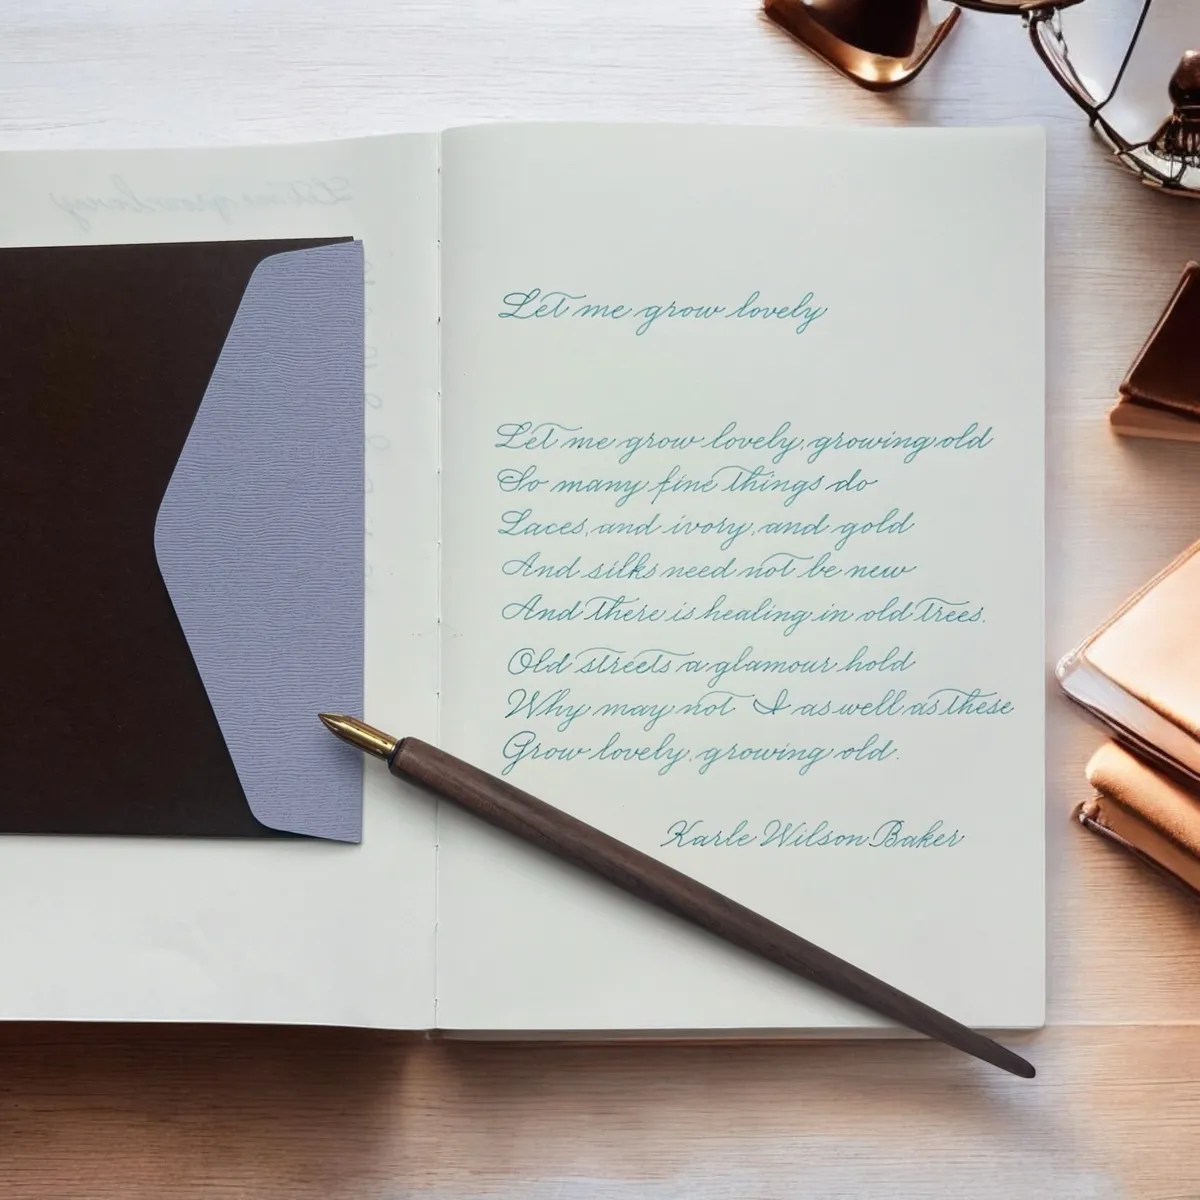 Let me grow lovely
Let me grow lovely, growing old
So many fine things do
Laces, and ivory, and gold
And silks need not be new
And there is healing in old trees.
Old streets a glamour hold
Why may not I as well as these
Grow lovely, growing old.
Karle Wilson Baker